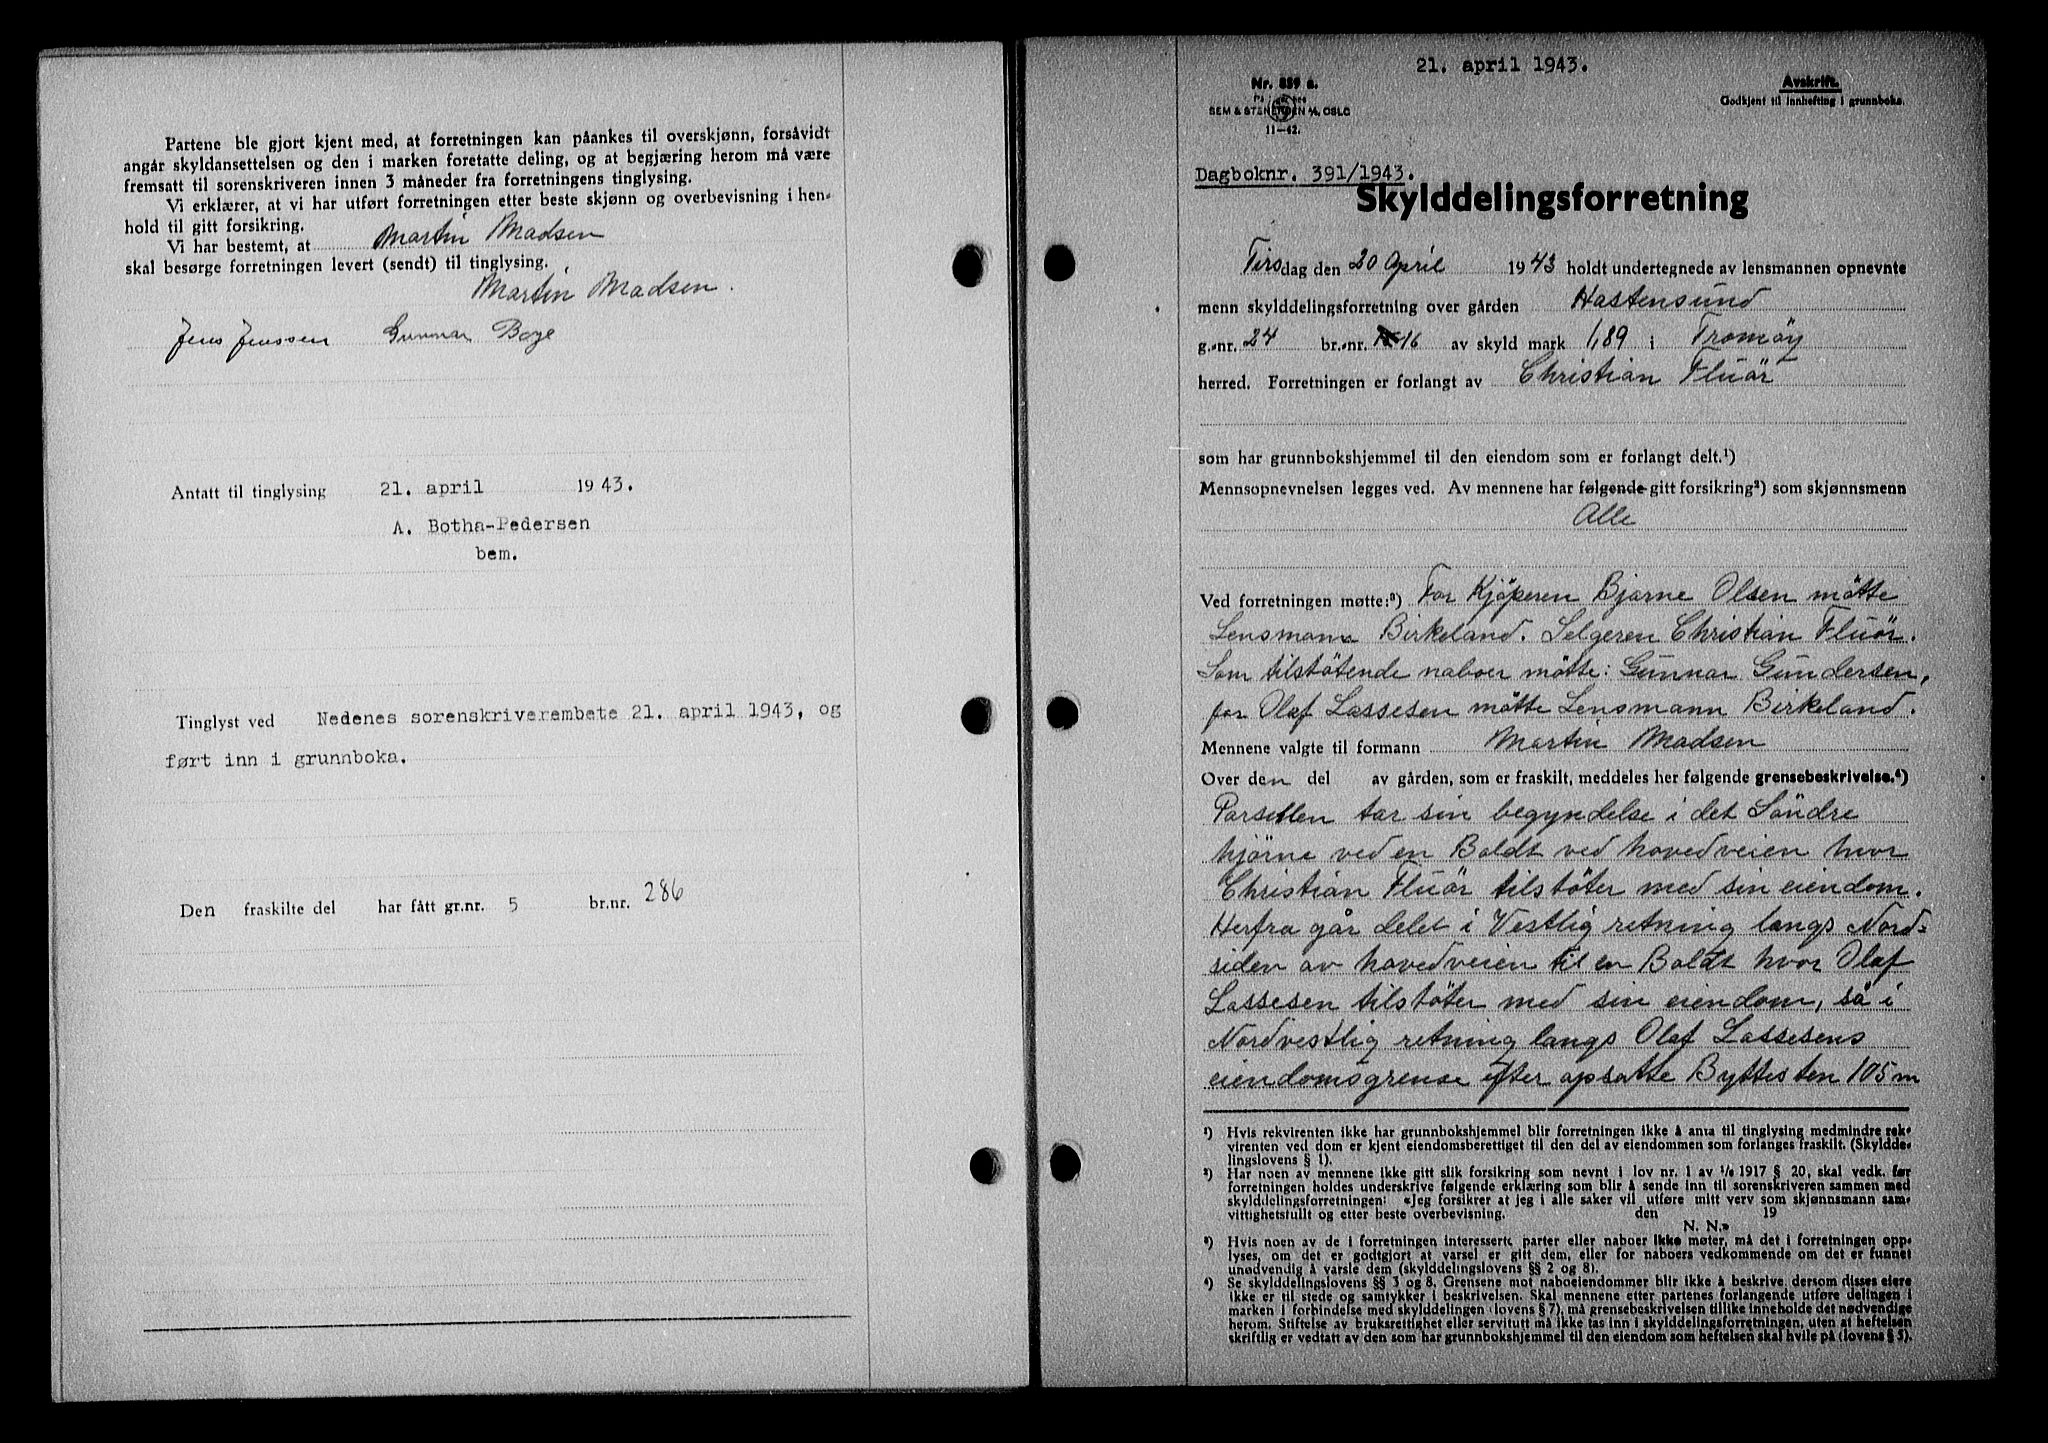 Partene ble gjort kjent med, at forretningen kan påankes til overskjønn, forsåvidt
angår skyldansettelsen og den i marken foretatte deling, og at begjæring herom må være
fremsatt til sorenskriveren innen 3 måneder fra forretningens tinglysing.
Vi erklærer, at vi har utført forretningen etter beste skjønn og overbevisning i hen-
hold til gitt forsikring.
Vi har bestemt, at Martin Madsen
skal besørge forretningen levert (sendt) til tinglysing.
Martin Madsen.
Jens Jenssen Gunnar Boye
Antatt til tinglysing 21. april 1943.
A. Botha-Pedersen
bem.
Tinglyst ved Nedenes sorenskriverembete 21. april 1943, og
ført inn i grunnboka.
Den fraskilte del har fått gr.nr. 5 br.nr. 286
21. april 1943.
Nr. 889 a.
SEM & STENERSEN A/S, OSLO
11—42.
Avskrift.
Godkjent til innhefting i grunnboka.
Dagboknr. 391/1943.
Skylddelingsforretning
Tirsdag den 20 April 1943 holdt undertegnede av lensmannen opnevnte
menn skylddelingsforretning over gården Hastensund
g.-nr. 24 br.-nr. 16 av skyld mark 1,89 i Tromøy
herred. Forretningen er forlangt av Christian Fluör
som har grunnbokshjemmel til den eiendom som er forlangt delt.¹)
Mennsopnevnelsen legges ved. Av mennene har følgende gitt forsikring²) som skjønnsmenn
Alle
Ved forretningen møtte:³) For Kjöperen Bjarne Olsen mötte
Lensmann Birkeland. Selgeren Christian Fluör.
Som tilstötende naboer mötte: Gunnar Gundersen,
for Olaf Lassesen mötte Lensmann Birkeland.
Mennene valgte til formann Martin Madsen
Over den del av gården, som er fraskilt, meddeles her følgende grensebeskrivelse.⁴)
Parsellen tar sin begyndelse i det Söndre
hjörne ved en Boldt ved hovedveien hvor
Christian Fluör tilstöter med sin eiendom.
Herfra går delet i Vestlig retning langs Nord-
siden av hovedveien til en Boldt hvor Olaf
Lassesen tilstöter med sin eiendom, så i
Nordvestlig retning langs Olaf Lassesens
eiendomsgrense efter opsatte Byttesten 105 m
¹) Hvis rekvirenten ikke har grunnbokshjemmel blir forretningen ikke å anta til tinglysing medmindre rek-
virenten ved dom er kjent eiendomsberettiget til den del av eiendommen som forlanges fraskilt. (Skyldde-
lingslovens § 1).
²) Har noen av mennene ikke gitt slik forsikring som nevnt i lov nr. 1 av 1/6 1917 § 20, skal vedk. før
forretningen holdes underskrive følgende erklæring som blir å sende inn til sorenskriveren sammen med
skylddelingsforretningen: «Jeg forsikrer at jeg i alle saker vil utføre mitt verv som skjønnsmann sam-
vittighetsfullt og etter beste overbevisning. den 19
N. N.»
³) Hvis noen av de i forretningen interesserte parter eller naboer ikke møter, må det i forretningen opp-
lyses, om det er godtgjort at varsel er gitt dem, eller for naboers vedkommende om det er funnet
unødvendig å varsle dem (skylddelingslovens §§ 2 og 8).
⁴) Se skylddelingslovens §§ 3 og 8. Grensene mot naboeiendommer blir ikke å beskrive dersom disses eiere
ikke er til stede og samtykker i beskrivelsen. Skal mennene etter partenes forlangende utføre delingen i
marken i forbindelse med skylddelingen (lovens § 7), må grensebeskrivelsen tillike inneholde det nødvendige
herom. Stiftelse av bruksrettighet eller servitutt må ikke tas inn i skylddelingsforretningen, uten at heftelsen
skriftlig er vedtatt av den som har grunnbokshjemmel til den eiendom som heftelsen skal hvile på (lovens § 5).